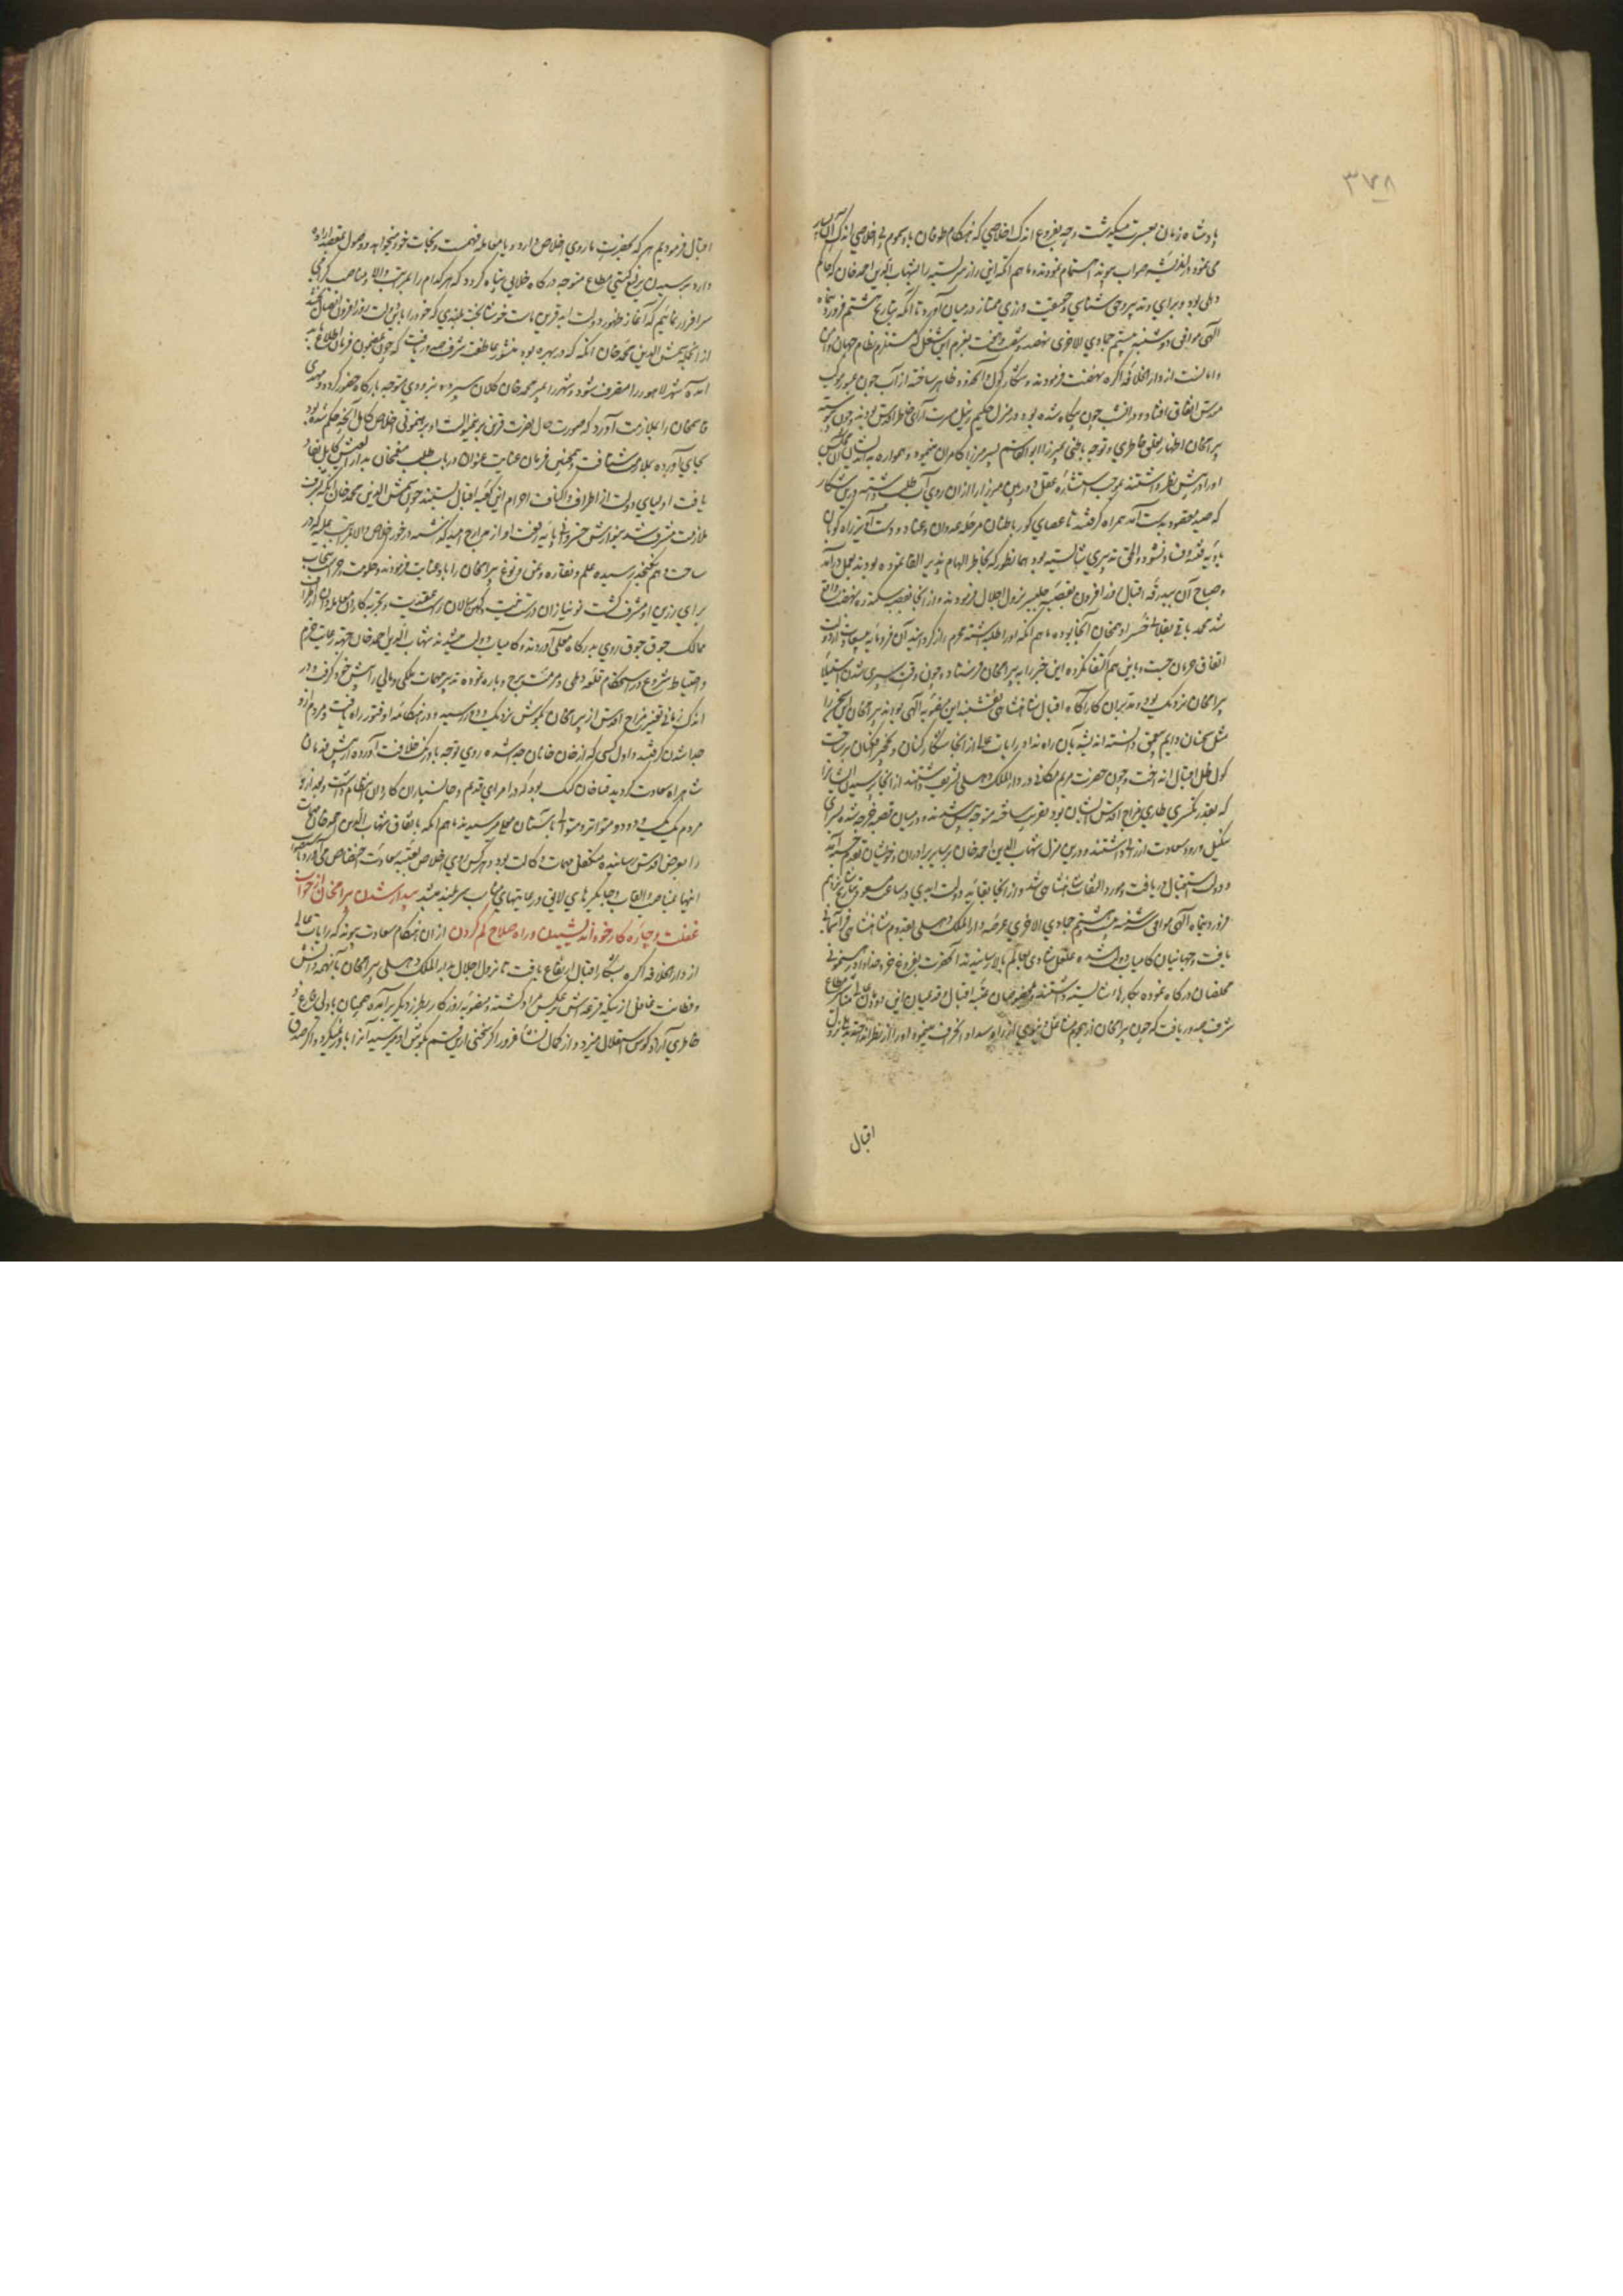 ۳۷۸
پادشاه زمان بعسرت میگذشت و چه بفروغ اندک اخلاصی که هنگام طوفان باد هجوم بی اخلاصی اندک آن بسیار
می نمود و اندیشه صواب پیوند اهتمام نمودند ماهم انکه این راز سربسته را بشهاب الدین احمد خان که حاکم
دهلی بود و برای و تدبیر و حق شناسی و جمعیت ورزی ممتاز در میان آورد تا آنکه بتاریخ هشتم فروردین ماه
الهی موافق دوشنبه بیستم جمادی الاخری نهصد و شصت و هفت بعزم این شغل که مستلزم نظام جهان و امن
و امانست از دار الخلافه اکره نهضت فرمودند و شکار کول و آنحدود ظاهر ساخته از آب جون عبور موکب
مقدس اتفاق افتاد و در آنشب چون پیکاه شده بود در منزل حکیم زنبیل مسرت آرای خاطر اقدس بودند و چون پیوسته
بیرامخان اظهار تعلق خاطری و توجه باطنی بمیرزا ابوالقاسم پسر میرزا کامران مینمود و همواره
او را در پیش نظر داشتند بموجب استشاره عقل دوربین میرزا را از آن روی آب طلب داشته درین شکار
که صید مقصود بدست آمد همراه گرفتند تا عصای کور باطنان مرحله عدوان و عناد و دست آویز راه کوران
بادیه فتنه و فساد نشود و الحق تدبیری شایسته بود همانطور که بخاطر الهام پذیر القا نموده بودند بعمل درآمد
و صباح آن ببدرقه اقبال خدا افزون بقصبه جلیسر نزول اجلال فرمودند و از آنجا بقصبه سکندره نهضت واقع
شد محمد باقی بقلانی خسر ادهم خان آنجا بوده ماهم انکه او را طلب داشته محرم راز گردانید آن فرومایه
اتفاق حرمان جست و باین هم اکتفا نکرده این خبر را به بیرامخان فرستاد و چون وقت سپری شدن استیلای
بیرامخان نزدیک بود و مدبران کارآگاه اقبال شاهنشاهی نقشبند این منصوبه الهی بودند بیرامخان این خبر را
مثل سخنان دایم سابق دانسته اندیشه بآن راه نداد و رایات عالی از آنجا شکار کنان و نخچیر افکنان بر ساحت
کول ظل اقبال انداخت و چون حضرت مریم مکانی در دار الملک دهلی تشریف داشتند از آنجا بپرسیدن ایشان
که بقدر تکسری طاری مزاج اقدس ایشان بود تقریب ساخته متوجه پیش شدند و در میان قصبه خرجه و سرای
سکیل ورود سعادت ارزانی داشتند و درین منزل شهاب الدین احمد خان با سایر برادران و خویشان بقدوم خدمت آمد
و دولت استقبال دریافت و مورد التفات شاهنشاهی شد و از آنجا بقائد دولت ابدی در ساعت مسعود بتاریخ نهم
فروردین ماه الهی موافق سه شنبه بیست و هشتم جمادی الاخری عرصه دار الملک دهلی بقدوم شاهنشاهی فر آسمانی
یافت و جهانیان کامیاب دولت شده غلغل شادی بعالم بالا رسانیدند آنحضرت بفروغ خرد خداداد رهنمونی
مخلصان درگاه نموده بکارهای شایسته داشتند و بمقیمان عتبه اقبال و قدیمیان این دودمان مناشیر مطاع
شرف صدور یافت که چون بیرامخان از هجوم مشاغل دنیوی از راه سداد انحراف مینمود او را از نظر انداخته
اقبال
اقبال فرمودیم هر که بحضرت ما روی اخلاص دارد و پایه معامله فهمست و نجات خود میخواهد و وصول بمقصد اراده
دارد برسیدن یرلیغ گیتی مطاع متوجه درگاه خلایق پناه گردد که هر کدام را بمراتب والا و مناصب گرامی
سرافراز نمائیم که آغاز ظهور دولت ابد قرین ماست خوشا بخت بلندی که خود را باین دولت روز افزون
از انجمله شمس الدین محمد خان اتکه که در بهیره بود منشور عاطفت شرف صدور یافت که چون بمضمون فرمان اطلاع یابد
آمده شهر لاهور را متصرف شود و شهر را بمیر محمد خان کلان سپرده بزودی متوجه بارگاه حضور گردد و مهدی
قاسمخان را بملازمت آورد که صورت حال نصرت قرین برینمنوالست او برهنمونی اخلاص کامل آنچه حکم شده بود
بجای آورده بملازمت شتافت و همچنین فرمان عنایت عنوان در باب طلب منعم خان بدار العیش کابل نفاذ
یافت اولیای دولت از اطراف و اکناف احرام این کعبه اقبال بستند چون شمس الدین محمد خان اتکه بشرف
ملازمت مشرف شد بنوازش خسروانی پایه رفعت او از مدارج امید گذشته در خور اخلاص والا مراتب
ساخت و هم نگنجد رسیده علم و نقاره و تمن توغ بیرامخان را باو عنایت فرمودند و حکومت و حراست پنجاب
برای رزین او مشرف گشت نو نیازان درست نیت و کهن سالان راست عقیدت و تجربه کاران معامله دان از اطراف
ممالک جوق جوق روی بدرگاه معلی آوردند و کامیاب دولت میشدند شهاب الدین احمد خان جهة رعایت حزم
و احتیاط شروع در استحکام قلعه دهلی و مرمت برج و باره نموده تدبیر مهمات ملکی و مالی را پیش خود گرفت و در
اندک زمانی تغیر مزاج اقدس از بیرامخان بگوش نزدیک و دور رسید و در هنگامه او فتور راه یافت و مردم از او
جدا شدن گرفتند و اول کسی که از خان خانان جدا شده روی توجه باورنک خلافت آورده
شاهراه سعادت گردید قیا خان کنک بود که در امرای قدیم و جانسپاران کاردان انتظام داشت و بعد از او
مردم یک یک و دو دو متواتر و متوالی بآستان معلی میرسیدند ماهم انکه باتفاق شهاب الدین احمد خان مهمات
را بعرض اقدس رسانیده متکفل مهمات وکالت بود و هر کس روی اخلاص بعتبه سعادت اختصاص می آورد
اینها بمناصب و القاب و جایگیرهای لایق و رعایتهای مناسب سربلند میشد بیدار شدن بیرامخان از خواب
غفلت و چاره کار خود اندیشیدن و راه صلاح گم کردن از آن هنگام سعادت پیوند که رایات عالی
از دار الخلافه اکره بشکار اقبال ارتفاع یافت تا نزول اجلال بدار الملک دهلی بیرامخان با آنهمه دانش
و فطانت غافل از نیکه قرعه اش بر عکس مراد گشته و منصوبه روزگار بطرز دیگر برآمده همچنان با دلی فارغ و
خاطری آزاد کوس استقلال میزد و از کمال نشاء غرور اگر سخنی ازین قسم بگوش او میرسید آنرا باور نمیکرد و اگر صدق